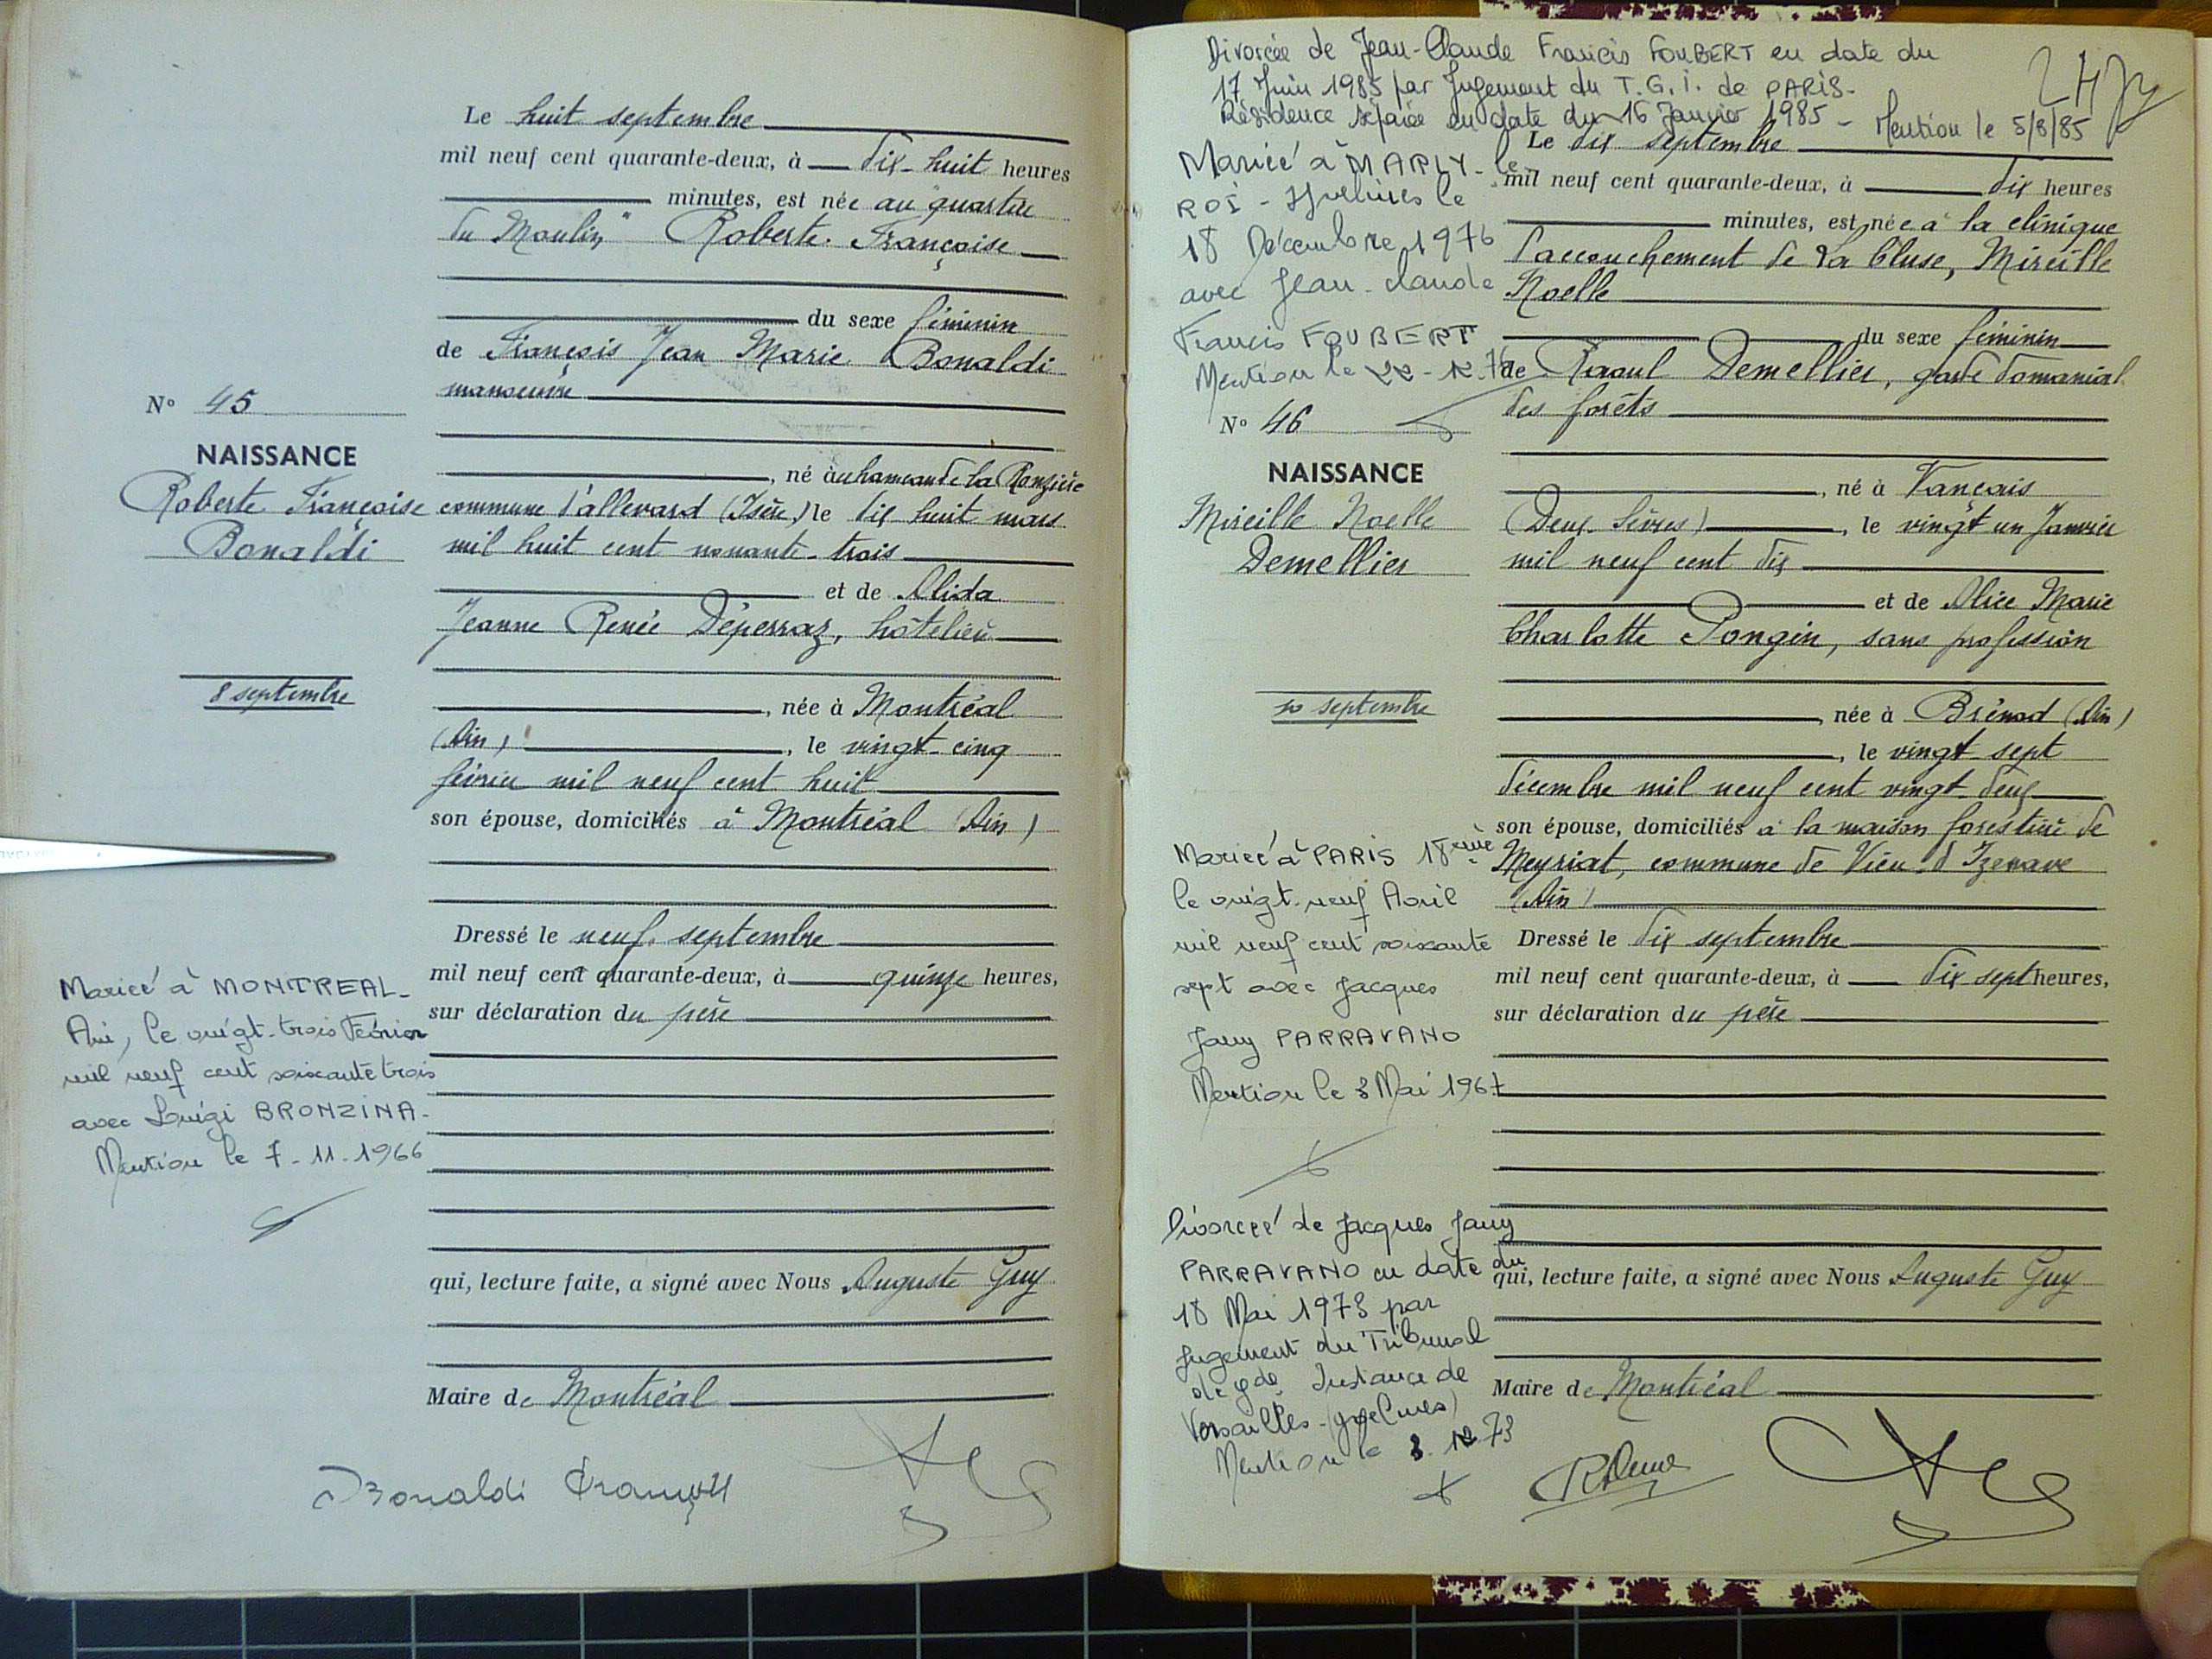 Le huit septembre
mil neuf cent quarante-deux, à dix-huit heures
minutes, est née au "quartier
du Moulin" Roberte Françoise
du sexe féminin
de François Jean Marie Bonaldi
manoeuvre
N° 45
NAISSANCE
Roberte Françoise
Bonaldi
8 septembre
, né au hameau de la
commune d'allevard (Isère) le dix huit mars
mil huit cent nonante-trois
et de Alida
Jeanne Renée Déperraz, hôtelière
, née à Montréal
(Ain) , le vingt-cinq
février mil neuf cent huit
son épouse, domiciliés à Montréal (Ain)
Dressé le neuf septembre
mil neuf cent quarante-deux, à quinze heures,
sur déclaration du père
Mariée à MONTREAL-
Ain, le vingt-trois Février
mil neuf cent soixante trois
avec Luigi BRONZINA-
Mention le 7-11-1966
qui, lecture faite, a signé avec Nous Auguste Guy
Maire de Montréal
Bonaldi François
Divorcée de Jean-Claude Francis FOUBERT en date du
17 Juin 1985 par Jugement du T.G.I. de PARIS-
Résidence séparée en date du 16 Janvier 1985 - Mention le 5/8/85
Mariée à MARLY-le-
ROI - Yvelines le
18 Décembre 1976
avec Jean-Claude
Francis FOUBERT
Mention le 22-12-76
N° 46
NAISSANCE
Mireille Noelle
Demellier
10 septembre
Le dix septembre
mil neuf cent quarante-deux, à dix heures
minutes, est née à la clinique
d'accouchement de La Cluse, Mireille
Noelle
du sexe féminin
de Raoul Demellier, garde domanial
des forêts
, né à Vançais
(Deux-Sèvres) , le vingt un Janvier
mil neuf cent dix
et de Alice Marie
Charlotte Pongin, sans profession
, née à Brénod (Ain)
, le vingt-sept
décembre mil neuf cent vingt-deux
son épouse, domiciliés à la maison forestière de
Meyriat, commune de Vieu-d'Izenave
(Ain)
Dressé le dix septembre
mil neuf cent quarante-deux, à dix sept heures,
sur déclaration du père
Mariée à PARIS 18ème
le vingt-neuf Avril
mil neuf cent soixante
sept avec Jacques
Jany PARRAVANO
Mention le 3 Mai 1967
Divorcée de Jacques Jany
PARRAVANO en date du
18 Mai 1973 par
Jugement du Tribunal
de gde Instance de
Versailles-(Yvelines)
Mention le 3.12.73
qui, lecture faite, a signé avec Nous Auguste Guy
Maire de Montréal